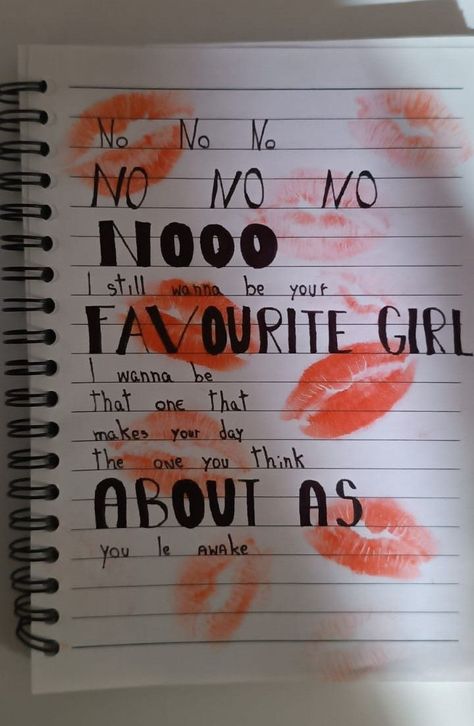 No No No
NO NO NO
NOOO
I still wanna be your
FAVOURITE GIRL
I wanna be
that one that
makes your day
the one you think
ABOUT AS
you le AWAKE